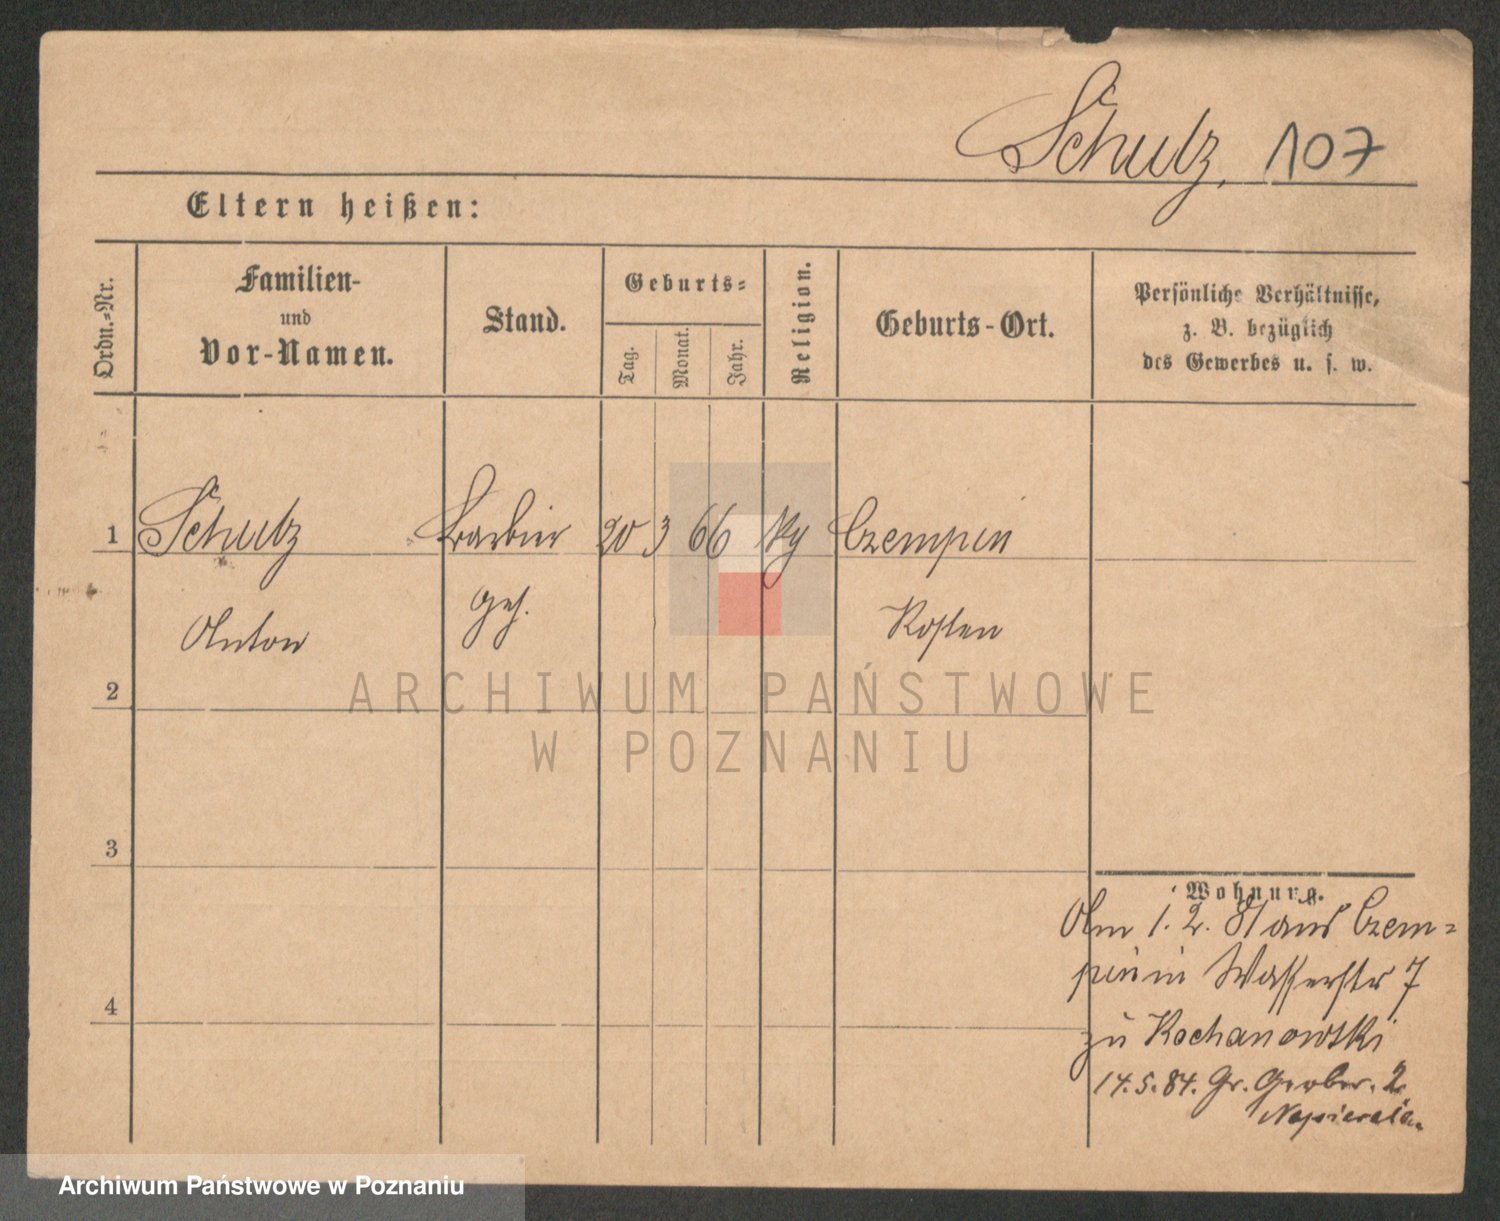 Schulz, 107
Eltern heißen:
Ordn.-Nr.
Familien-
und
Vor-Namen.
Stand.
Geburts-
Tag.
Monat.
Jahr.
Religion.
Geburts-Ort.
Persönliche Verhältnisse,
z. B. bezüglich
des Gewerbes u. s. w.
1 Schulz Barbier 20 3 66 Czempin
Anton geh. Kosten
2
ARCHIWUM PAŃSTWOWE
W POZNANIU
3
4
Wohnung.
Am 1. 2. 81 aus Czem-
pin in Wasserstr 7
zu Kochanowski
14.5.84. Gr. Gerber. 2
Napierala.
Archiwum Państwowe w Poznaniu